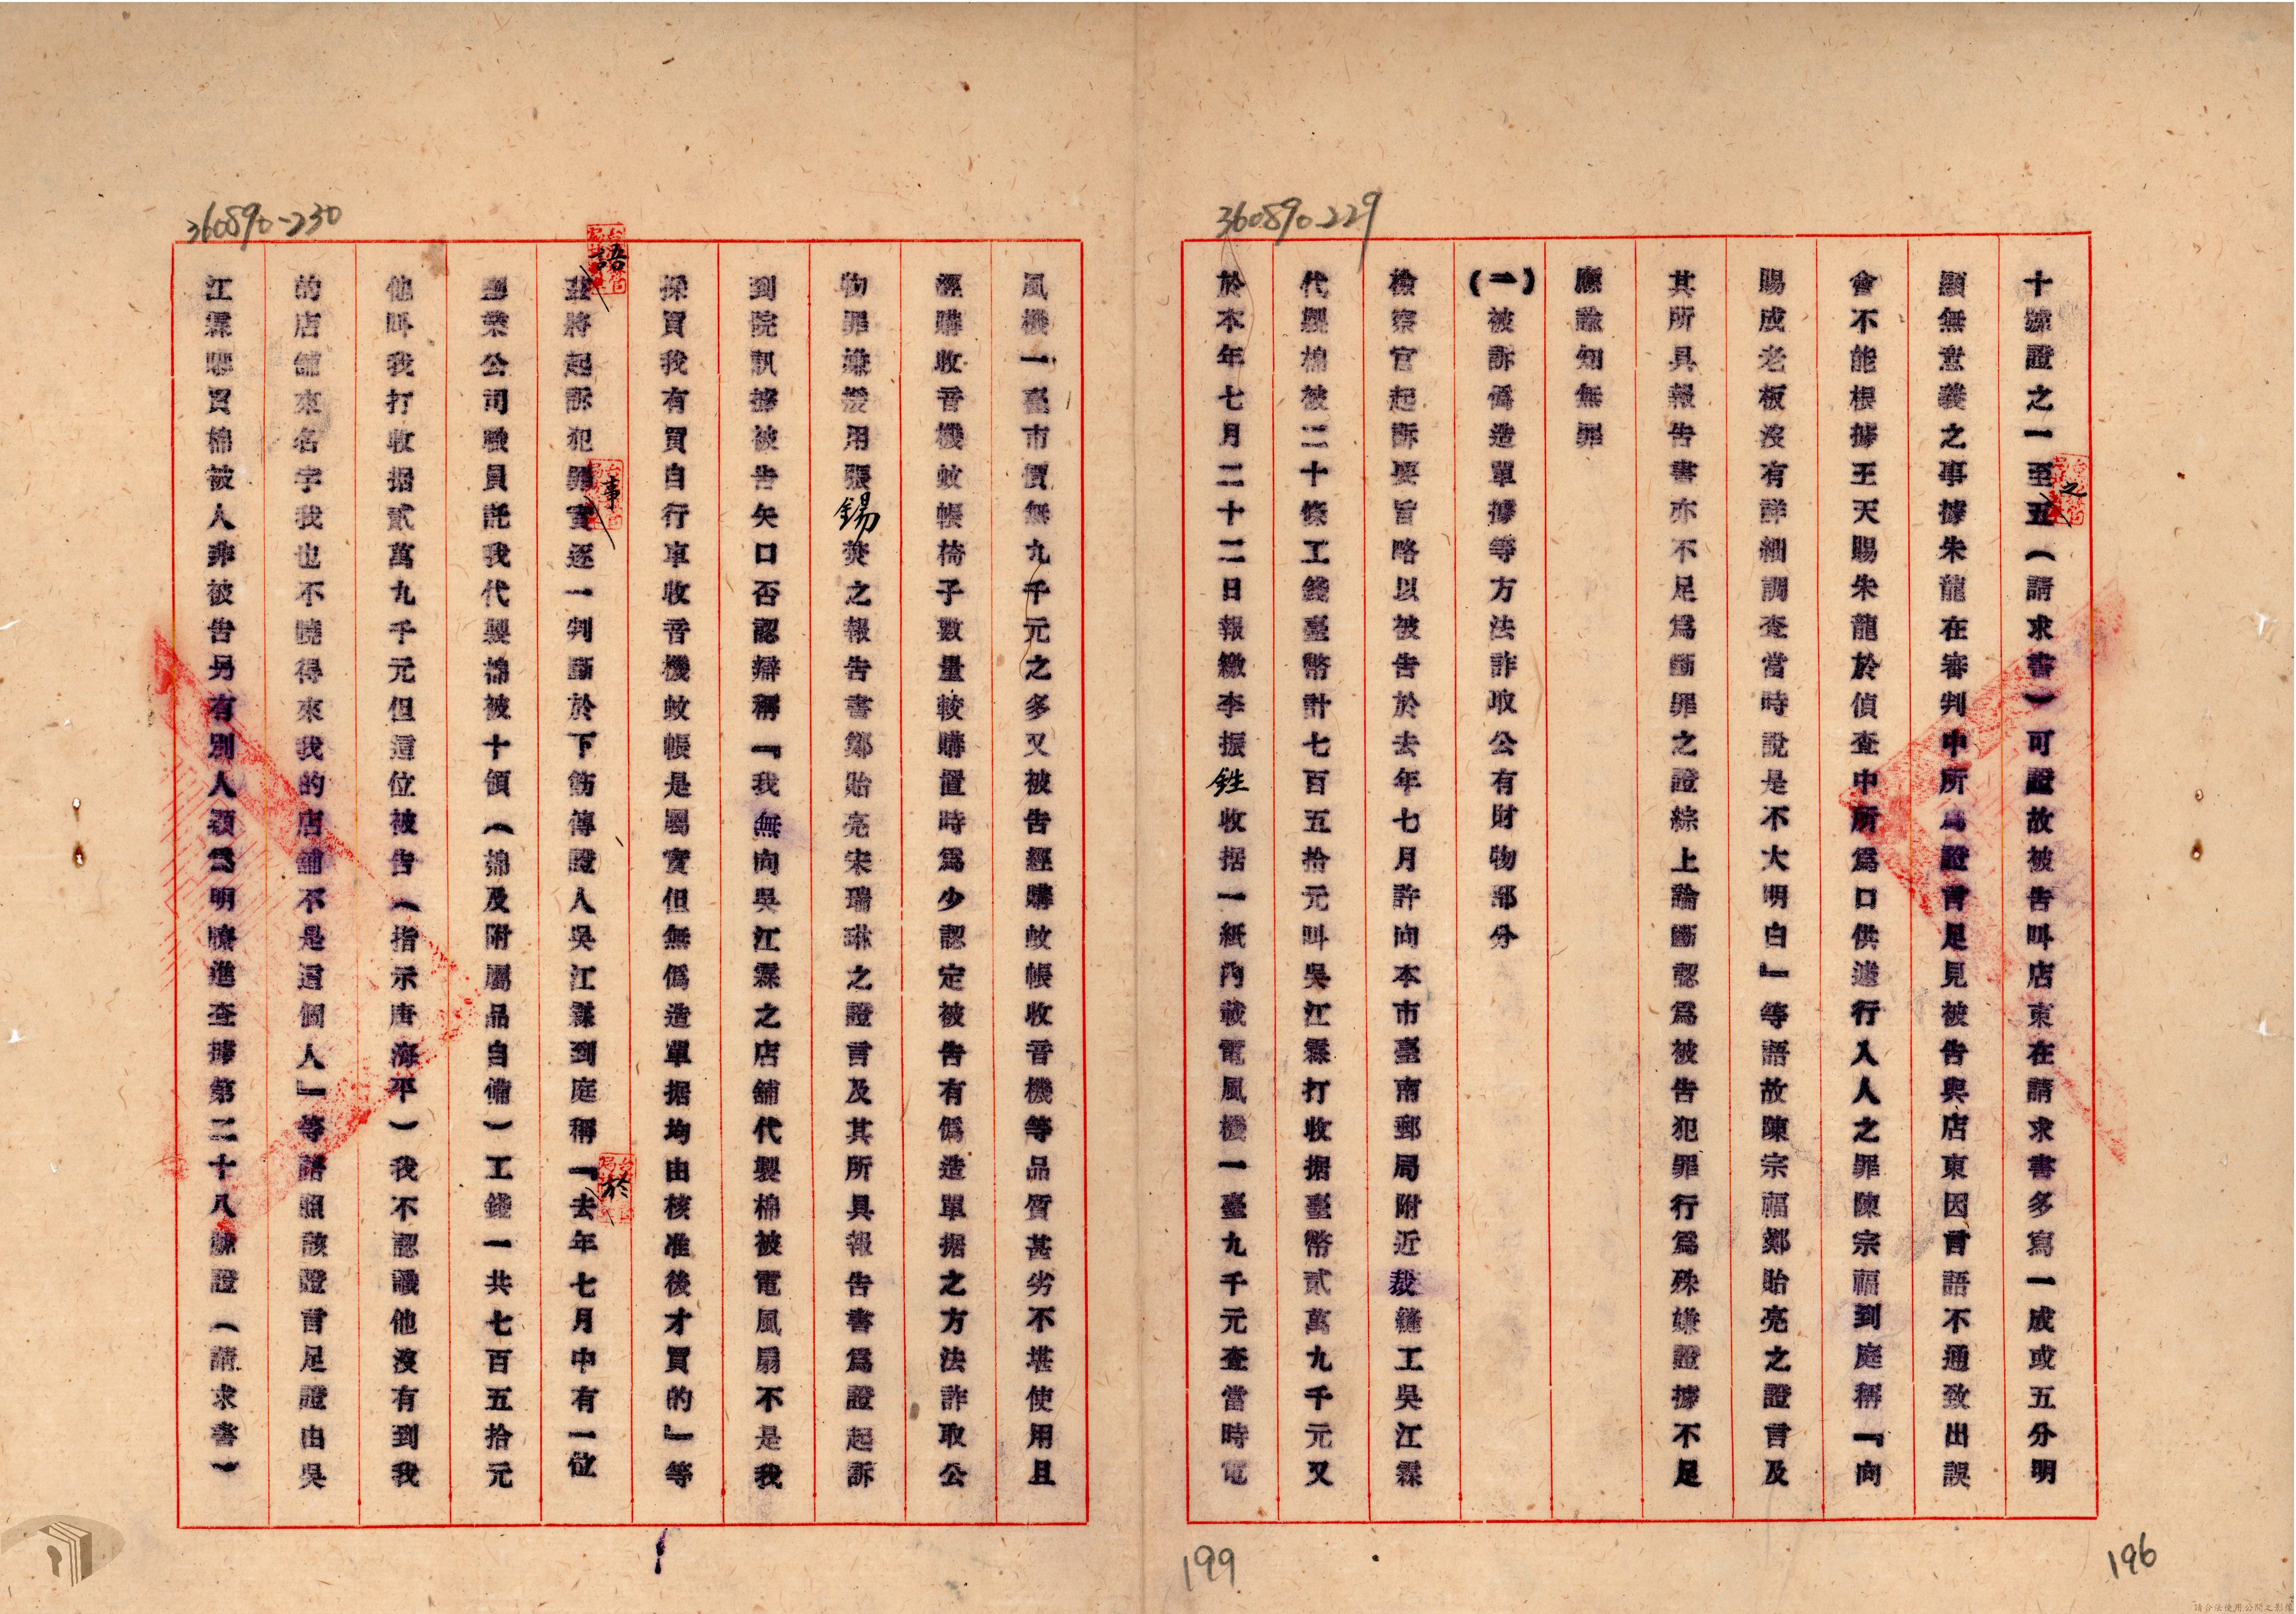 360890-229
十號證之一至五之(請求書)可證故被告叫店東在請求書多寫一成或五分明
顯無意義之事據朱龍在審判中所爲證言足見被告與店東因言語不通致出誤
會不能根據王天賜朱龍於偵查中所爲口供遽行入人之罪陳宗福到庭稱『向
賜成老板沒有詳細調查當時說是不大明白』等語故陳宗福鄭貽亮之證言及
其所具報告書亦不足爲斷罪之證綜上論斷認爲被告犯罪行爲殊嫌證據不足
應諭知無罪
(一)被訴僞造單據等方法詐取公有財物部分
檢察官起訴要旨略以被告於去年七月許向本市臺南郵局附近裁縫工吳江霖
代製棉被二十條工錢臺幣計七百五拾元叫吳江霖打收据臺幣貳萬九千元又
於本年七月二十二日報繳李振鉎收据一紙內載電風機一臺九千元查當時電
199
196
360890-230
風機一臺市價無九千元之多又被告經購蚊帳收音機等品質甚劣不堪使用且
經購收音機蚊帳椅子數量較購置時爲少認定被告有僞造單据之方法詐取公
物罪嫌援用張錫焚之報告書鄭貽亮宋瑞琳之證言及其所具報告書爲證起訴
到院訊據被告矢口否認辯稱『我無向吳江霖之店舖代製棉被電風扇不是我
採買我有買自行車收音機蚊帳是屬實但無僞造單据均由核准後才買的』等
語玆將起訴犯罪事實逐一判斷於下筋傳證人吳江霖到庭稱『於去年七月中有一位
鹽業公司職員託我代製棉被十領(棉及附屬品自備)工錢一共七百五拾元
他叫我打收据貳萬九千元但這位被告(指示唐海平)我不認識他沒有到我
的店舖來名字我也不曉得來我的店舖不是這個人』等語照該證言足證由吳
江霖購買棉被人非被告另有別人頗爲明瞭進查據第二十八號證(請求書)
請合法使用公開之影像